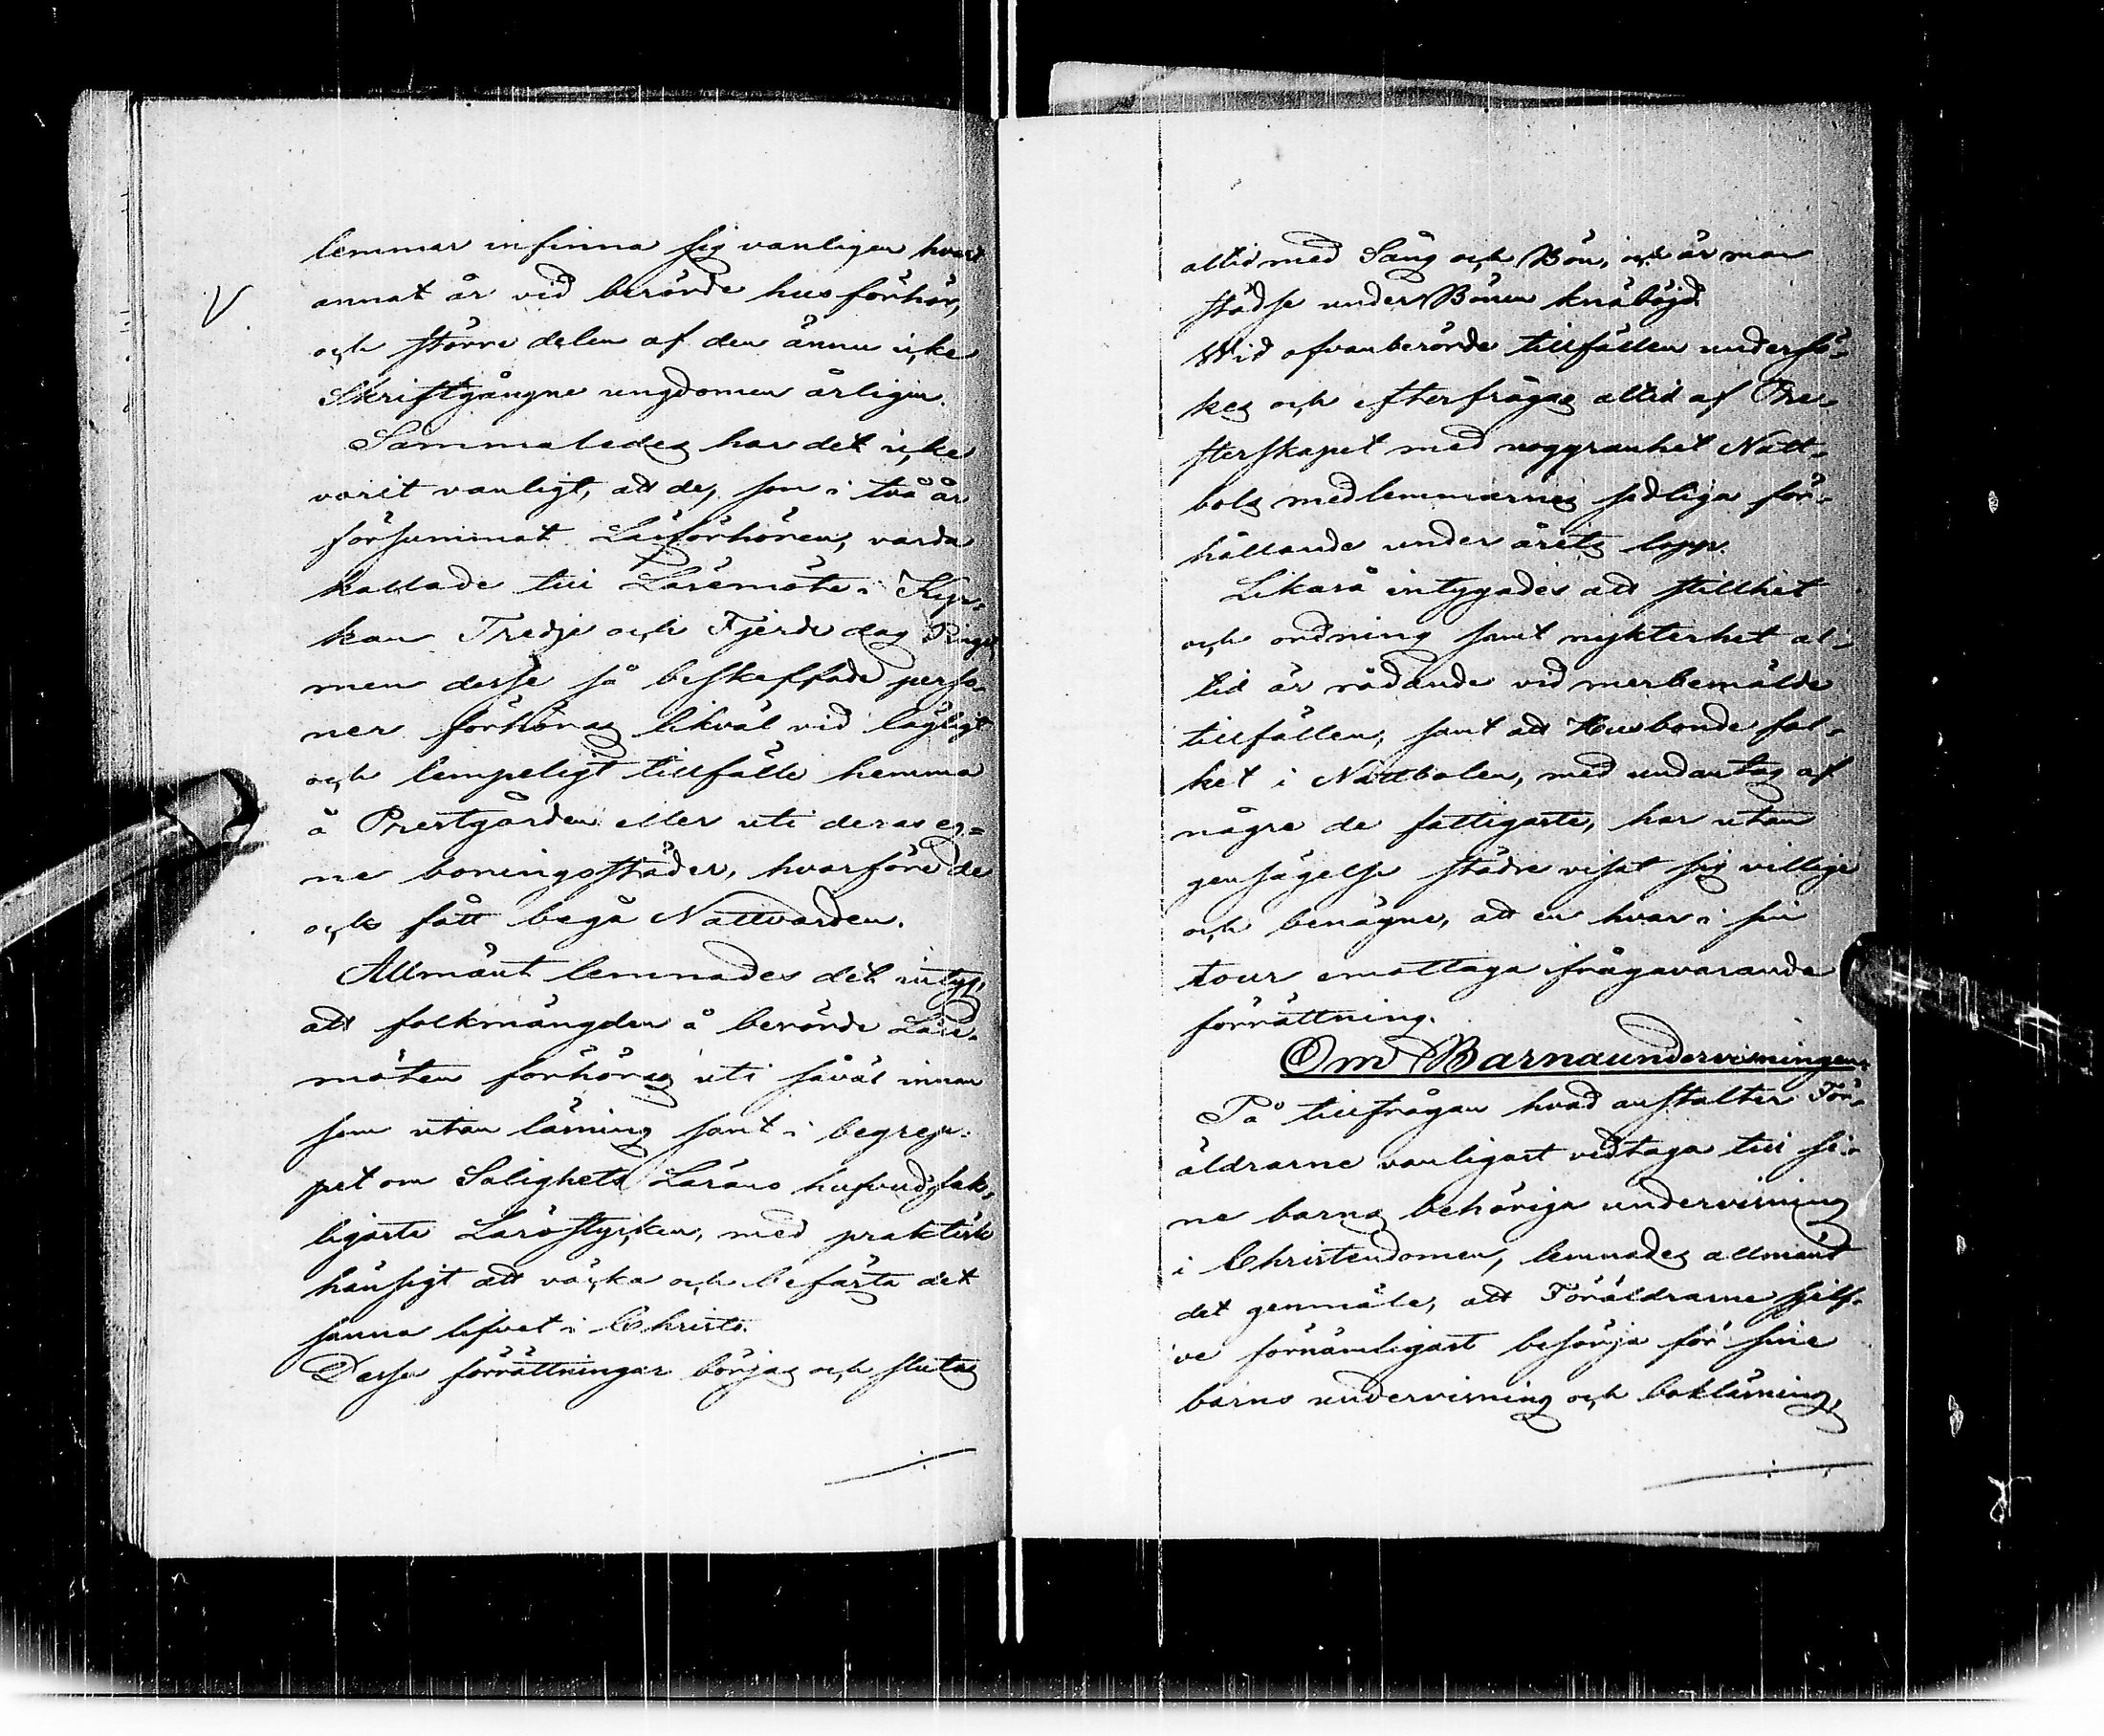 lemmar infinna sig vanligen hvart
annat år vid berörde husförhör,
och större delen af den ännu icke
Skriftgångne ungdomen årligen.
Sammaledes har det icke
varit vanligt, att de, som i två år
försummat Läsförhören, varda
kallade till Läsemöte i Kyr-
kan Tredje och Fjerde dag Pingst
men desse så beskaffade perso-
ner förhöras likväl vid lägligt
och lempeligt tillfälle hemma
å Prestgården eller uti deras eg=
ne boningsställen, hvarföre de
ock fått begå Nattvarden.
Allmänt lemnades det intyg,
att folkmängden å berörde Läse-
möten förhöras uti såväl innan
som utan läsning samt i begrep-
pet om Salighets Lärans hufvudsak-
ligaste Lärostycken, med praktisk
hänsigt att väcka och befästa det
sanna lifvet i Christo.
Desse förrättningar börjas och slutas
altid med Sång och Bön, och är man
städse under Bönen knäböjd.
Wid ofvanberörde tillfällen undersö-
kes och efterfrågas altid af Pre-
sterskapet med noggranhet Natt-
bols medlemmarnes sedliga för-
hållande under årets lopp.
Likaså intygades att stillhet
och ordning samt nykterhet al-
tid är rådande vid merbemälde
tillfällen, samt att Husbonde fol-
ket i Nattbolen, med undantag af
någre de fattigaste, har utan
gensägelse städse visat sig villige
och benägne, att en hvar i sin
tour emottaga ifrågavarande
förrättning.
Om Barnaundervisningen.
På tillfrågan hvad anstalter För-
äldrarne vanligast vidtaga till si-
ne barns behöriga undervisning
i Christendomen, lemnades allmänt
det genmäle, att Föräldrarne sjelf-
ve förnämligast besörja för sine
barns undervisning och bokläsning,